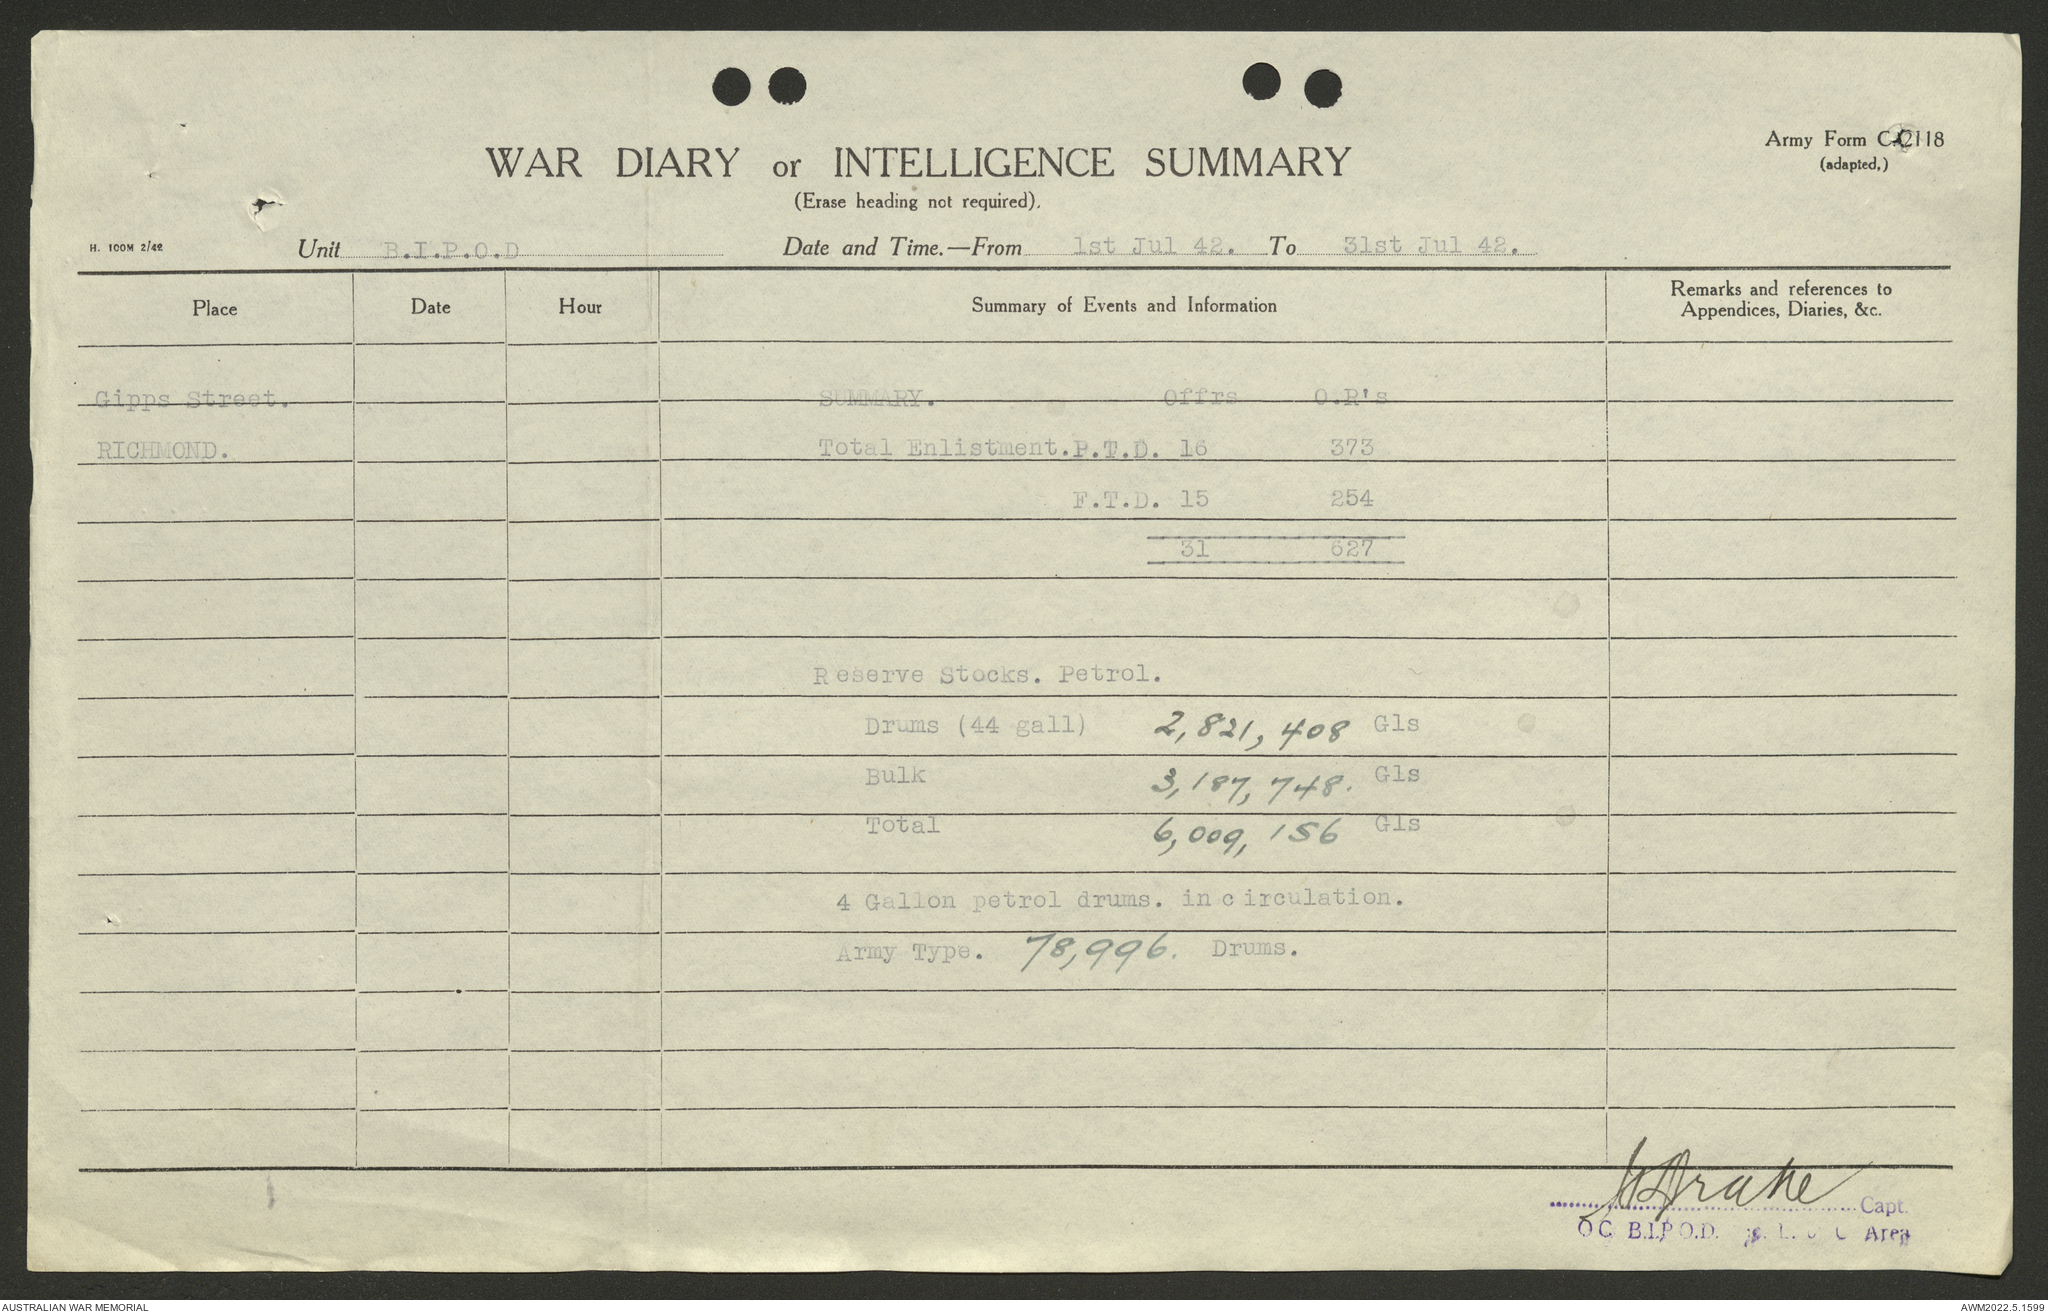 Army Form C.2118
(adapted,)
WAR DIARY or INTELLIGENCE SUMMARY
(Erase heading not required).
H. 100M 2/42
Unit B.I.P.O.D Date and Time.—From 1st Jul 42. To 31st Jul 42.
Place Date Hour Summary of Events and Information Remarks and references to
Appendices, Diaries, &c.
Gipps Street. SUMMARY. Offrs O.R's
RICHMOND. Total Enlistment.P.T.D. 16 373
F.T.D. 15 254
31 627
Reserve Stocks. Petrol.
Drums (44 gall) 2,821,408 Gls
Bulk 3,187,748. Gls
Total 6,009,156 Gls
4 Gallon petrol drums. in circulation.
Army Type. 78,996. Drums.
Drake Capt.
OC B.I.P.O.D. L. Area
AUSTRALIAN WAR MEMORIAL
AWM2022.5.1599